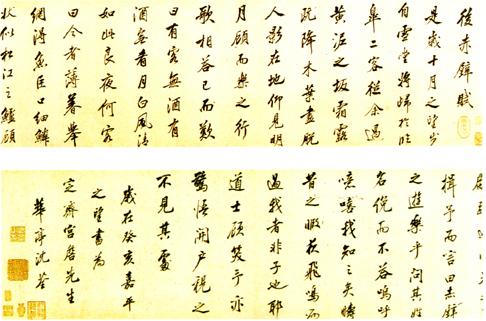 後赤壁賦
是歲十月之望步
自雪堂將歸於臨
皋二客從余過
黃泥之坂霜露
既降木葉盡脫
人影在地仰見明
月顧而樂之行
歌相答已而歎
曰有客無酒有
酒無肴月白風清
如此良夜何客
曰今者薄暮舉
網得魚巨口細鱗
狀似松江之鱸顧
揖予而言曰赤壁
之遊樂乎問其姓
名俛而不答嗚呼
噫嘻我知之矣疇
昔之夜飛鳴而
過我者非子也耶
道士顧笑予亦
驚悟開戶視之
不見其處
歲在癸亥嘉平
之望書為
定齋宮詹先生
華亭沈荃